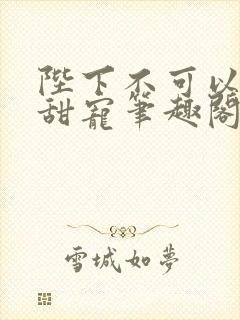 陛下不可以
甜寵筆趣閣
雪城如夢